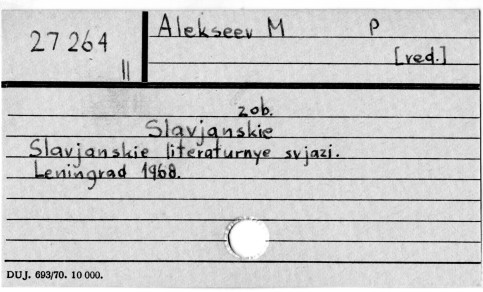 27264
II
Alekseev M P
[red.]
zob.
Slavjanskie
Slavjanskie literaturnye svjazi.
Leningrad 1968.
DUJ. 693/70. 10 000.